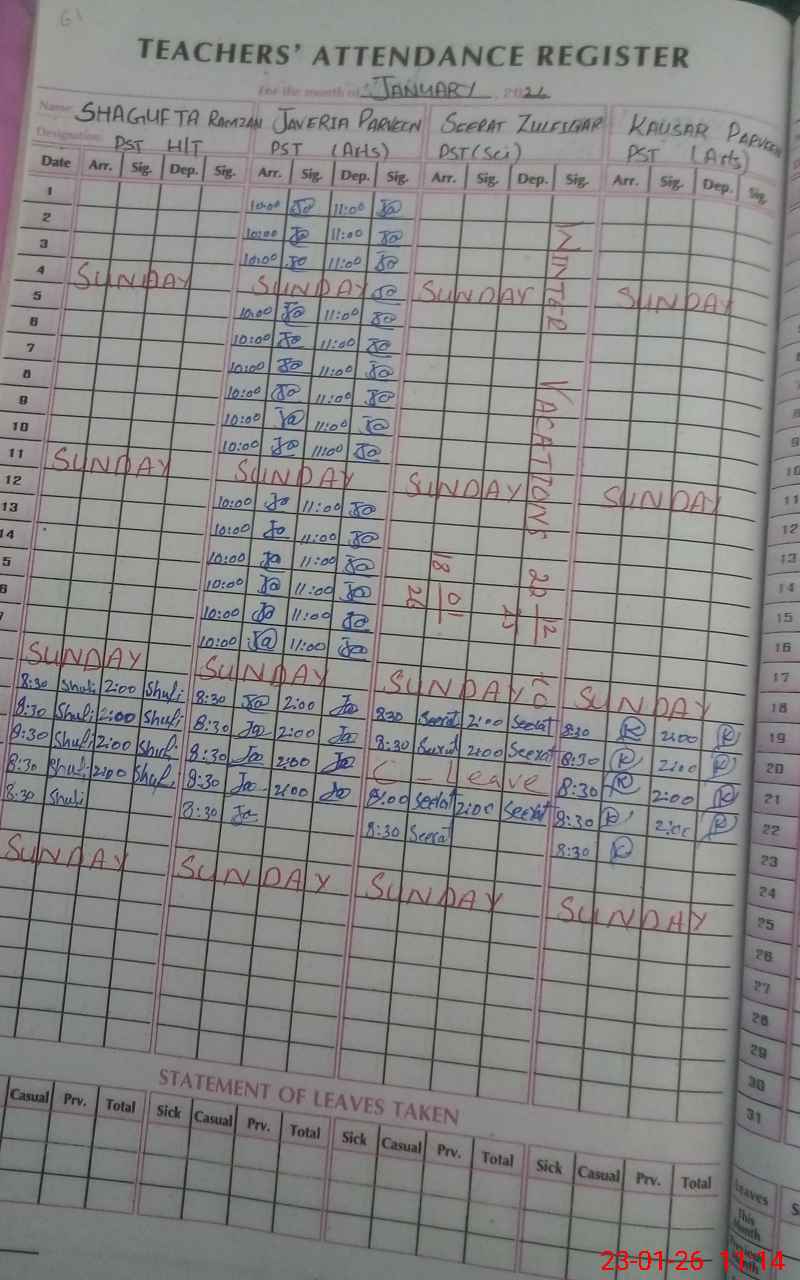 61
TEACHERS' ATTENDANCE REGISTER
For the month of JANUARY, 2026
Name: SHAGUFTA RAMZAN JAVERIA PARVEEN SEERAT ZULFIQAR KAUSAR PARVEEN
Designation: PST HT PST (Arts) PST (Sci) PST (Arts)
Date Arr. Sig. Dep. Sig. Arr. Sig. Dep. Sig. Arr. Sig. Dep. Sig. Arr. Sig. Dep. Sig.
1 10:00 Ja 11:00 Ja
2 10:00 Ja 11:00 Ja
3 10:00 Ja 11:00 Ja
4 SUNDAY SUNDAY Ja SUNDAY SUNDAY
5 10:00 Ja 11:00 Ja
6 10:00 Ja 11:00 Ja
7 10:00 Ja 11:00 Ja
8 10:00 Ja 11:00 Ja
9 10:00 Ja 11:00 Ja
10 10:00 Ja 11:00 Ja
11 SUNDAY SUNDAY SUNDAY SUNDAY
12 10:00 Ja 11:00 Ja
13 10:00 Ja 11:00 Ja
14 10:00 Ja 11:00 Ja
5 10:00 Ja 11:00 Ja
6 10:00 Ja 11:00 Ja
7 10:00 Ja 11:00 Ja
WINTER VACATIONS 22 12 25 TO 18 01 26
SUNDAY SUNDAY SUNDAY SUNDAY 18
8:30 Shuli 2:00 Shuli 8:30 Ja 2:00 Ja 8:30 Seerat 2:00 Seerat 8:30 K 2:00 K 19
8:30 Shuli 2:00 Shuli 8:30 Ja 2:00 Ja 8:30 Seerat 2:00 Seerat 8:30 K 2:00 K 20
8:30 Shuli 2:00 Shuli 8:30 Ja 2:00 Ja C-Leave 8:30 K 2:00 K 21
8:30 Shuli 2:00 Shuli 8:30 Ja 2:00 Ja 8:00 Seerat 2:00 Seerat 8:30 K 2:00 K 22
8:30 Shuli 8:30 Ja 8:30 Seerat 8:30 K 23
24
SUNDAY SUNDAY SUNDAY SUNDAY 25
26
27
28
29
30
31
10
11
12
13
14
15
16
17
STATEMENT OF LEAVES TAKEN
Casual Prv. Total Sick Casual Prv. Total Sick Casual Prv. Total Sick Casual Prv. Total
Leaves
This Month
23-01-26 11:14